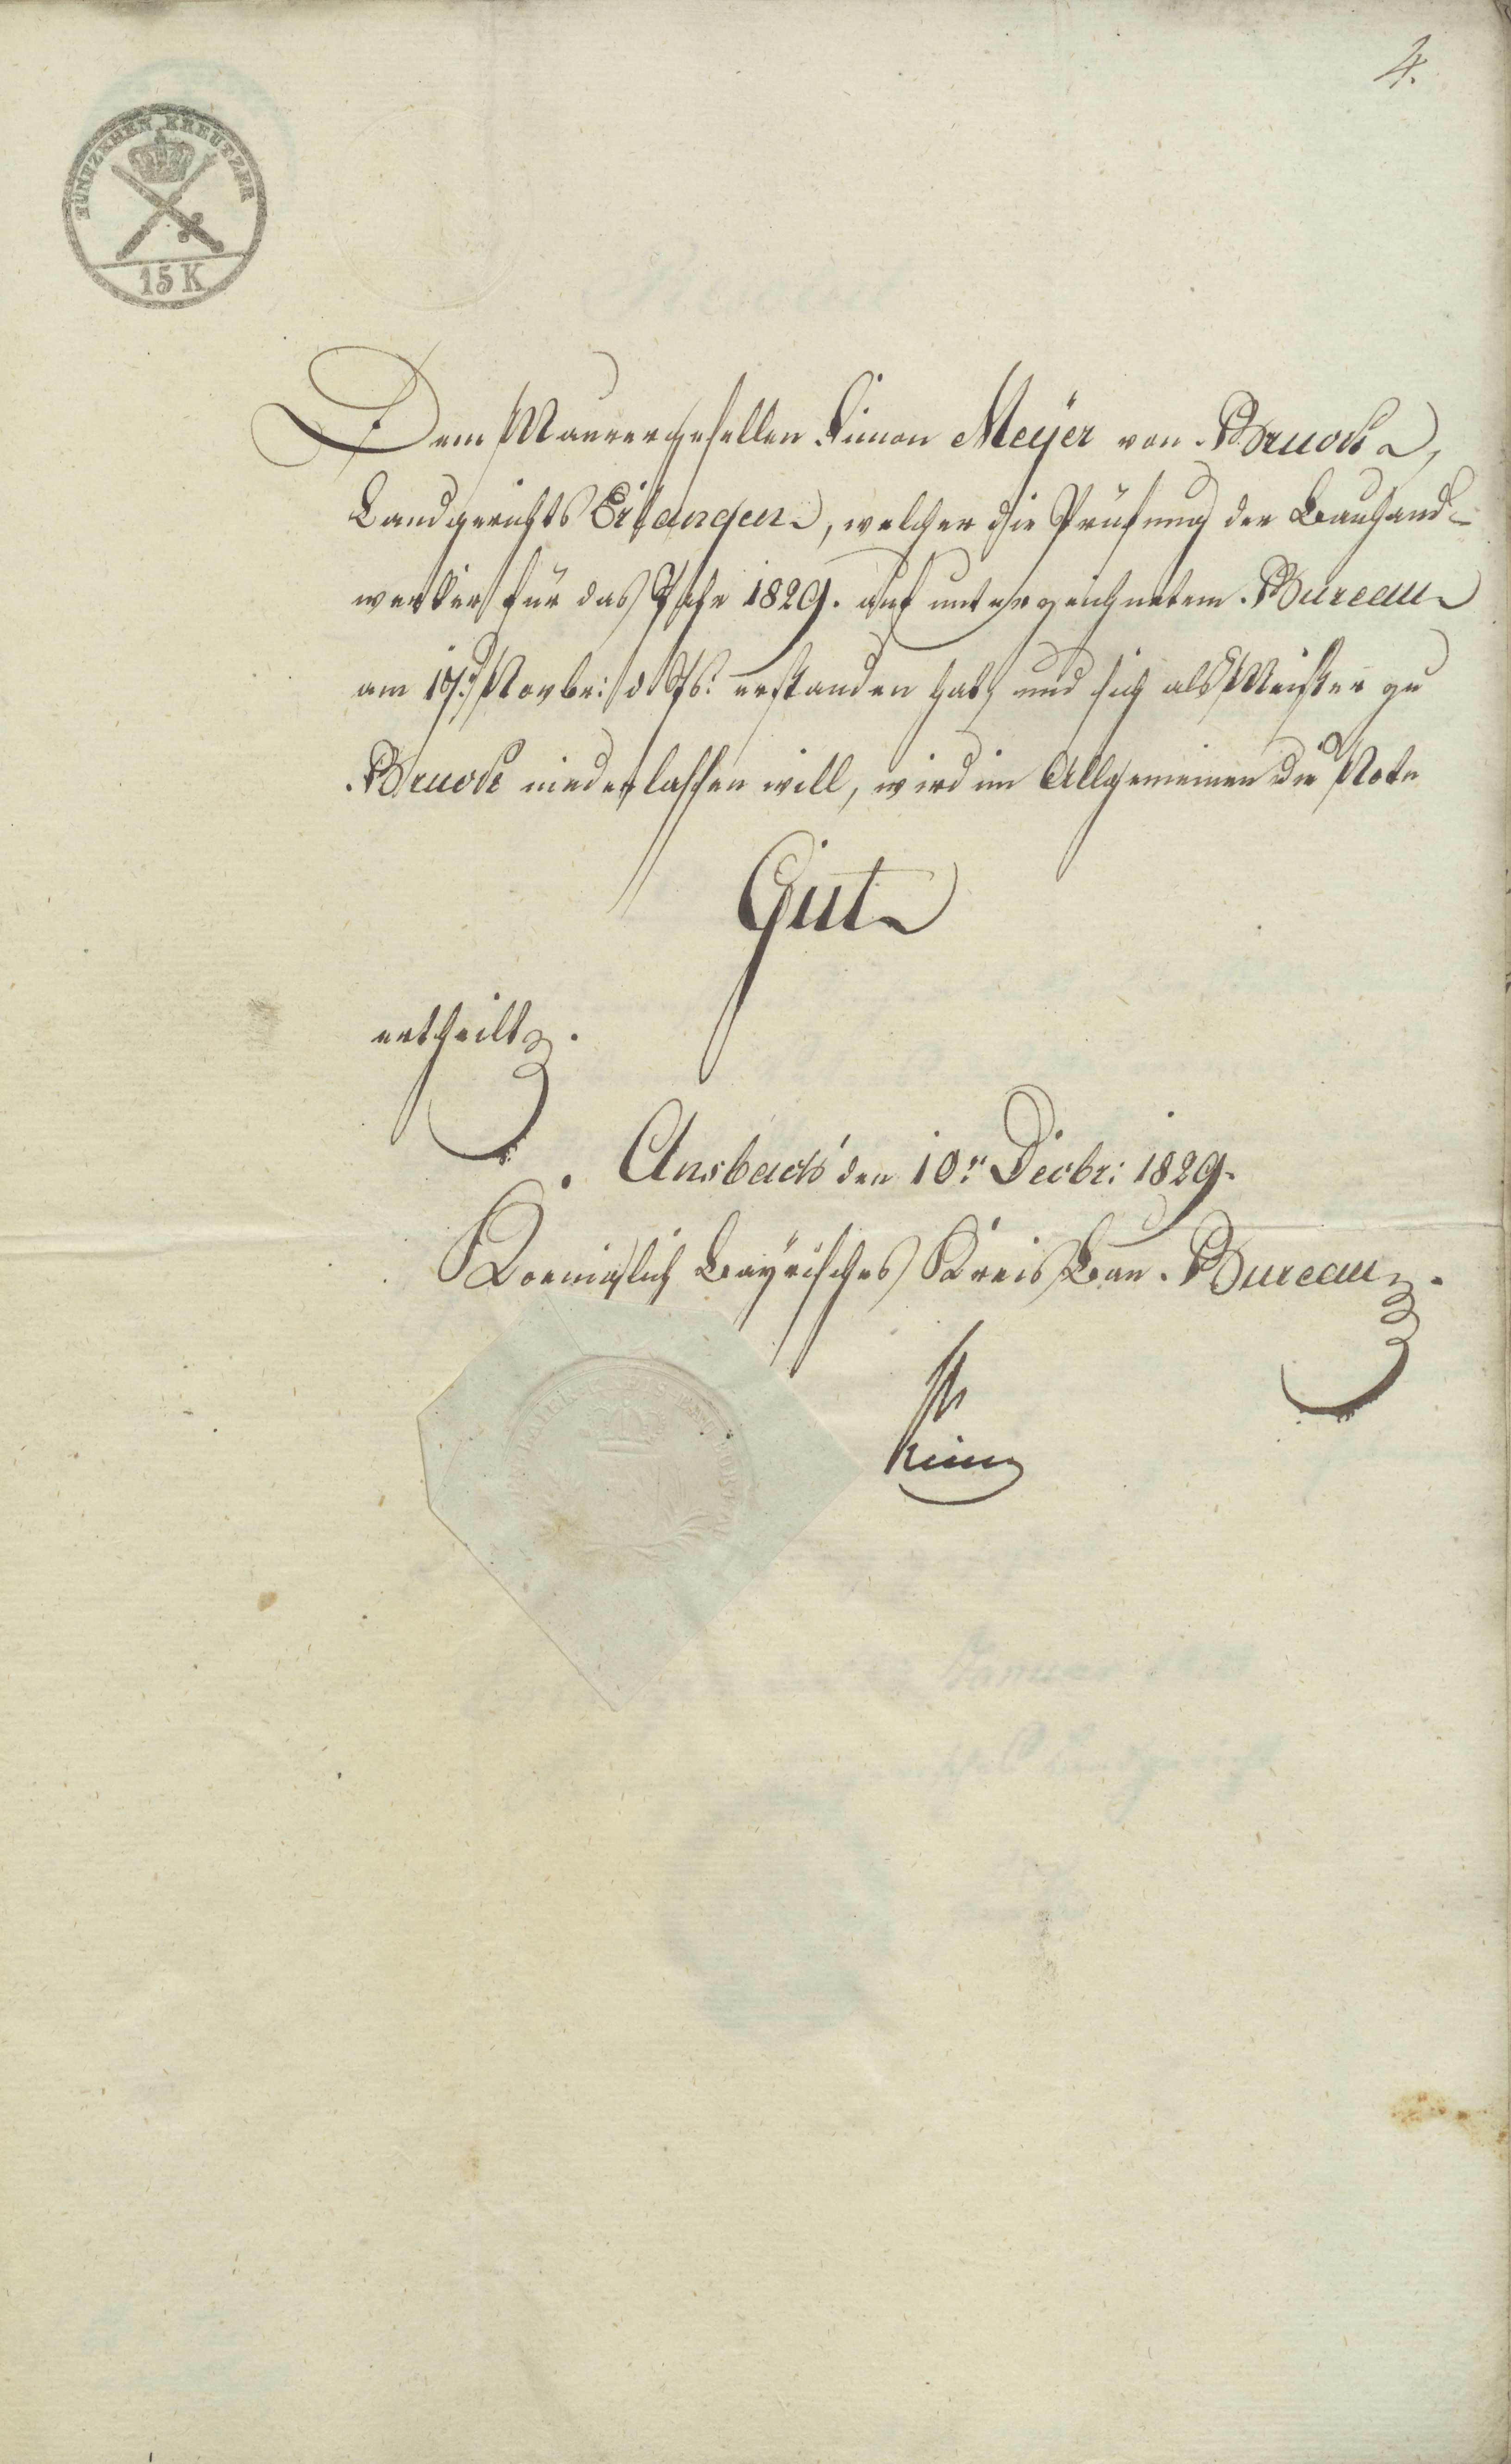 4.
FÜNFZEHEN KREUTZER
15 K
Dem Maurergesellen Simon Meÿer von Bruck,
Landgerichts Erlangen, welcher die Prüfung der Bauhand-
werker für das Jahr 1829. auf unterzeichnetem Bureau
am 17. Novbr: d. Js. erstanden hat, und sich als Meister zu
Bruck niederlassen will, wird im Allgemeinen die Note
Gut
ertheilt.
Ansbach den 10.n Decbr: 1829.
Koeniglich Bayrisches Kreis Bau Bureau.